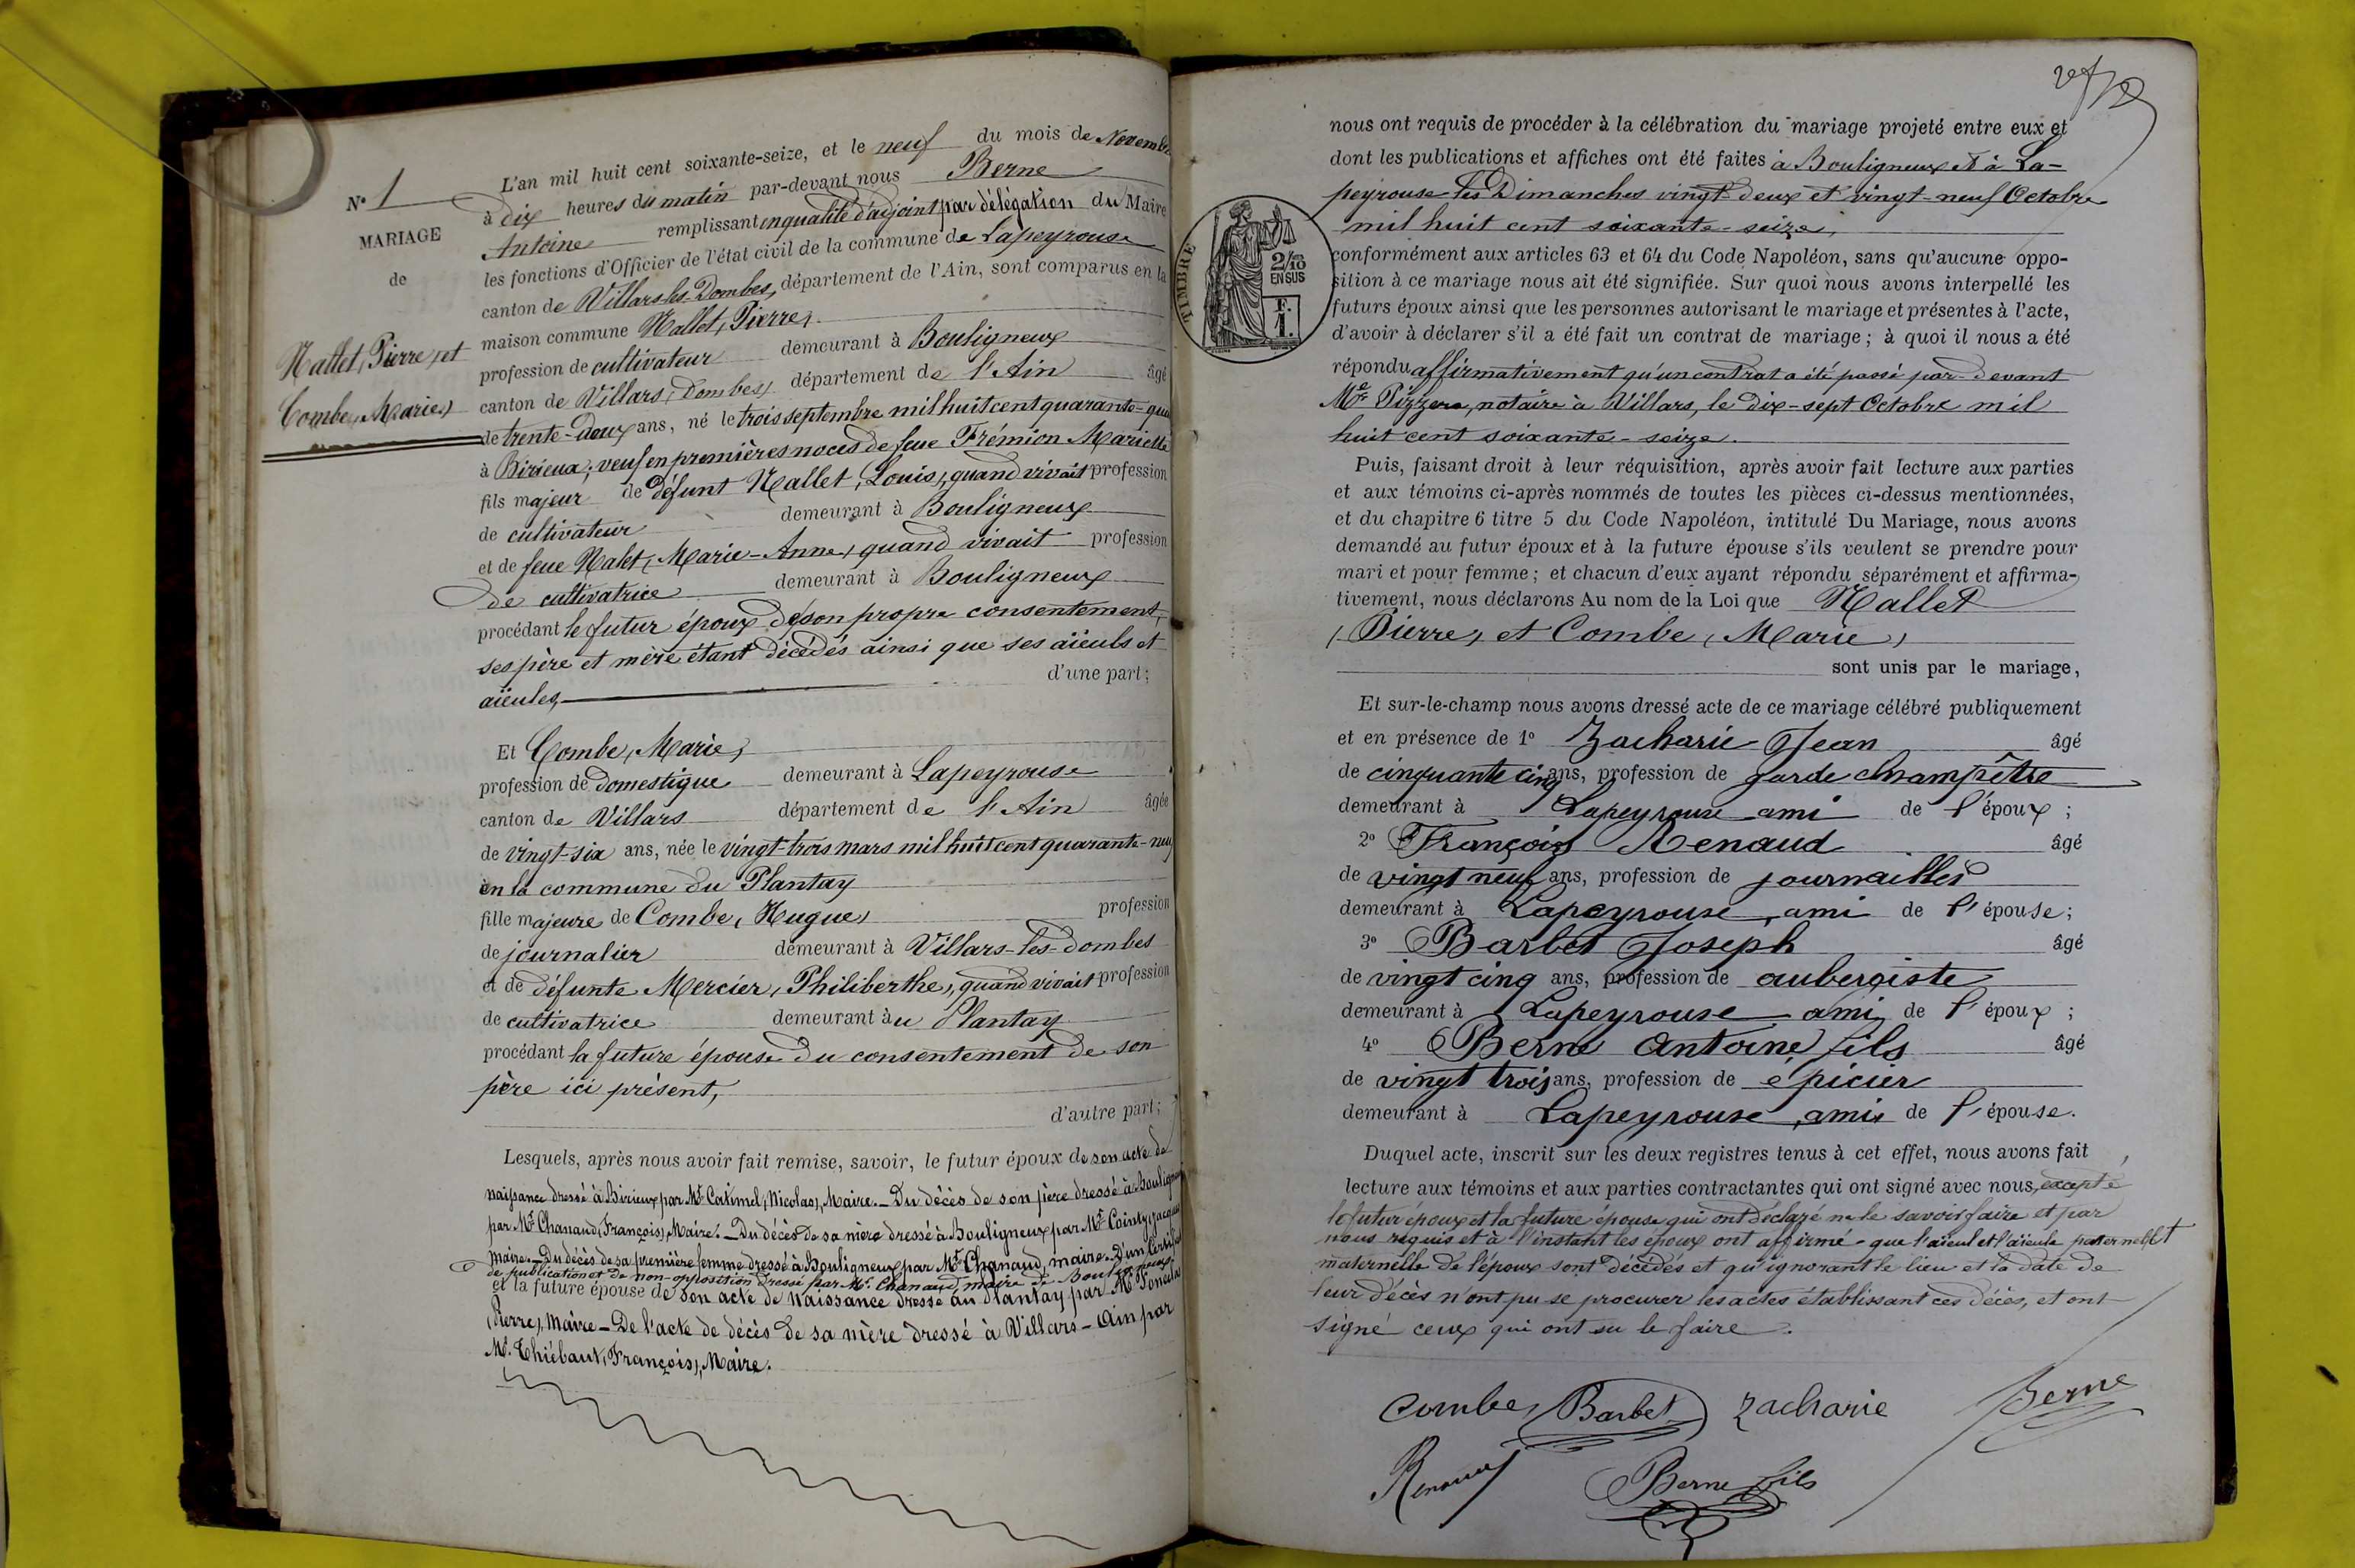 N° 1
MARIAGE
de
Nallet, Pierre, et
Combe, Marie,
L'an mil huit cent soixante-seize, et le neuf du mois de Novembre
à dix heures du matin par-devant nous Berne
Antoine remplissant en qualité d'adjoint par délégation du Maire
les fonctions d'Officier de l'état civil de la commune de Lapeyrouse
canton de Villars-les-Dombes, département de l'Ain, sont comparus en la
maison commune Nallet, Pierre,
profession de cultivateur demeurant à Bouligneux
canton de Villars, Dombes, département de l'Ain âgé
de trente-deux ans, né le trois septembre mil huit cent quarante-qua
à Birieux; veuf en premières noces de feue Frémion Mariette
fils majeur de défunt Nallet, Louis, quand vivait profession
de cultivateur demeurant à Bouligneux
et de feue Nalet, Marie-Anne, quand vivait profession
de cultivatrice demeurant à Bouligneux
procédant le futur époux de son propre consentement,
ses père et mère étant décédés ainsi que ses aïeuls et
aïeules, d'une part;
Et Combe, Marie,
profession de domestique demeurant à Lapeyrouse
canton de Villars département de l'Ain âgée
de vingt-six ans, née le vingt-trois mars mil huit cent quarante-neuf
en la commune du Plantay
fille majeure de Combe, Hugue, profession
de journalier demeurant à Villars-les-Dombes
et de défunte Mercier, Philiberthe, quand vivait profession
de cultivatrice demeurant àu Plantay
procédant la future épouse du consentement de son
père ici présent,
d'autre part;
Lesquels, après nous avoir fait remise, savoir, le futur époux de son acte de
naissance dressé à Birieux par Mr Catimel, Nicolas, Maire. — Du décès de son père dressé à Bouligneux
par Mr Chanaud, François, Maire. — Du décès de sa mère dressé à Bouligneux par Mr Cointy, Jacques
Maire. — Du décès de sa première femme dressé à Bouligneux par Mr Chanaud, maire. D'un certificat
de publication et de non-opposition dressé par Mr Chanaud, maire de Bouligneux
et la future épouse de son acte de naissance dressé au Plantay par Mr
(Pierre), Maire — De l'acte de décès de sa mère dressé à Villars — Ain par
Mr. Thiébaut, François, Maire.
nous ont requis de procéder à la célébration du mariage projeté entre eux et
dont les publications et affiches ont été faites à Bouligneux et à La-
peyrouse les Dimanches vingt-deux et vingt-neuf Octobre
mil huit cent soixante-seize,
TIMBRE
2/10 EN SUS
F. 1.
conformément aux articles 63 et 64 du Code Napoléon, sans qu'aucune oppo-
sition à ce mariage nous ait été signifiée. Sur quoi nous avons interpellé les
futurs époux ainsi que les personnes autorisant le mariage et présentes à l'acte,
d'avoir à déclarer s'il a été fait un contrat de mariage; à quoi il nous a été
répondu affirmativement qu'un contrat a été passé par-devant
Me Pizzera, notaire à Villars, le dix-sept Octobre mil
huit cent soixante-seize.
Puis, faisant droit à leur réquisition, après avoir fait lecture aux parties
et aux témoins ci-après nommés de toutes les pièces ci-dessus mentionnées,
et du chapitre 6 titre 5 du Code Napoléon, intitulé Du Mariage, nous avons
demandé au futur époux et à la future épouse s'ils veulent se prendre pour
mari et pour femme; et chacun d'eux ayant répondu séparément et affirma-
tivement, nous déclarons Au nom de la Loi que Nallet
(Pierre, et Combe, Marie,
sont unis par le mariage,
Et sur-le-champ nous avons dressé acte de ce mariage célébré publiquement
et en présence de 1° Zacharie Jean âgé
de cinquante cinq ans, profession de garde champêtre
demeurant à Lapeyrouse ami de l'époux;
2° François Renaud âgé
de vingt neuf ans, profession de journaillier
demeurant à Lapeyrouse, ami de l'épouse;
3° Barbet Joseph âgé
de vingt cinq ans, profession de aubergiste
demeurant à Lapeyrouse ami de l'époux;
4° Berne Antoine fils âgé
de vingt trois ans, profession de épicier
demeurant à Lapeyrouse, amis de l'épouse.
Duquel acte, inscrit sur les deux registres tenus à cet effet, nous avons fait
lecture aux témoins et aux parties contractantes qui ont signé avec nous, excepté
le futur époux et la future épouse qui ont déclaré ne le savoir faire et par
nous requis et à l'instant les époux ont affirmé que l'aïeul et l'aïeule paternel et
maternelle de l'époux sont décédés et qu'ignorant le lieu et la date de
leur décès n'ont pu se procurer les actes établissant ces décès, et ont
signé ceux qui ont su le faire.
Combe Barbet Zacharie Berne
Renaud Berne fils